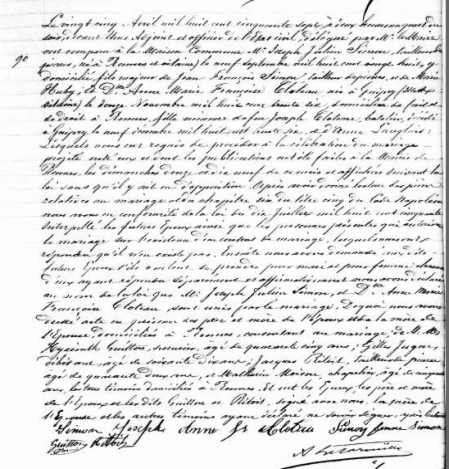 Le vingt cinq Avril mil huit cent cinquante sept, à deux heures
soir, devant Nous Adjoint et officier de l'Etat civil, délégué par Mr le Maire
90
ont comparu à la Maison Commune Mr Joseph Julien Simon, tailleur de
pierres, né à Rennes et vilaine) le neuf septembre mil huit cent vingt huit, y
domicilié, fils majeur de Jean François Simon, tailleur de pierres, et de Marie
Huby; et Dlle Anne Marie Françoise Cloteau née à Guipry (Ille et
vilaine) le douze Novembre mil huit cent trente six, domiciliée de fait et
de droit à Rennes, fille mineure de feu Joseph Cloteau, batelier, décédé
à Guipry le neuf mil huit cent trente six, et d'Anne
Lesquels nous ont requis de procéder à la célébration du mariage
projeté entr'eux et dont les publications ont été faites à la Mairie de
Rennes, les dimanches douze et dix neuf de ce mois et affichées suivant la
loi sans qu'il y ait eu d'opposition. Après avoir donné lecture des pièces
relatives au mariage et du chapitre six du titre cinq du Code Napoléon
nous avons en conformité de la loi du dix Juillet mil huit cent cinquante
interpellé les futurs Epoux ainsi que les personnes présentes qui autorisent
le mariage sur l'existence d'un contrat de mariage, lesquels nous ont
répondu qu'il n'en existe pas. Ensuite nous avons demandé aux dits
futurs Epoux s'ils veulent se prendre pour mari et pour femme, chacun
d'eux ayant répondu séparément et affirmativement nous avons déclaré
au nom de la loi que Mr Joseph Julien Simon, et Dlle Anne Marie
Françoise Cloteau sont unis par le mariage. De quoi nous avons
dressé acte en présence des père et mère de l'Epoux et de la mère de
l'Epouse, domiciliés à Rennes, consentant au mariage, de M. Mrs
Hyacinthe Guitton, menuisier, âgé de quarante cinq ans; Gilles
débitant, âgé de soixante ans, Jacques Retoit, tailleur de pierres
âgé de quarante deux ans, et Mathurin Moison, chapelier, âgé de
ans, les tous témoins domiciliés à Rennes. Et ont les Epoux, les père et mère
de l'Epoux et les dits Guitton et Retoit, signé avec nous, la mère de
l'Epouse et les autres témoins ayant déclaré ne savoir signer,
Simon Joseph Anne Cloteau Simon Simon
Guitton Retoit